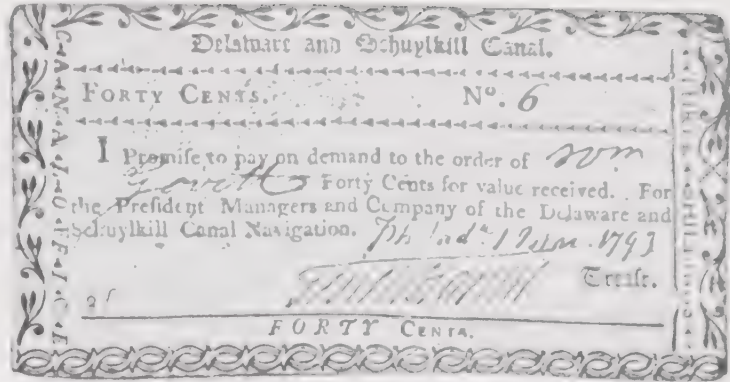 Delaware and Schuylkill Canal.
FORTY CENTS. No. 6
I Promise to pay on demand to the order of Wm
Forty Cents for value received. For
the President Managers and Company of the Delaware and
Schuylkill Canal Navigation. Philada. 1793
Treasr.
FORTY CENTS.
CANAL OFFICE